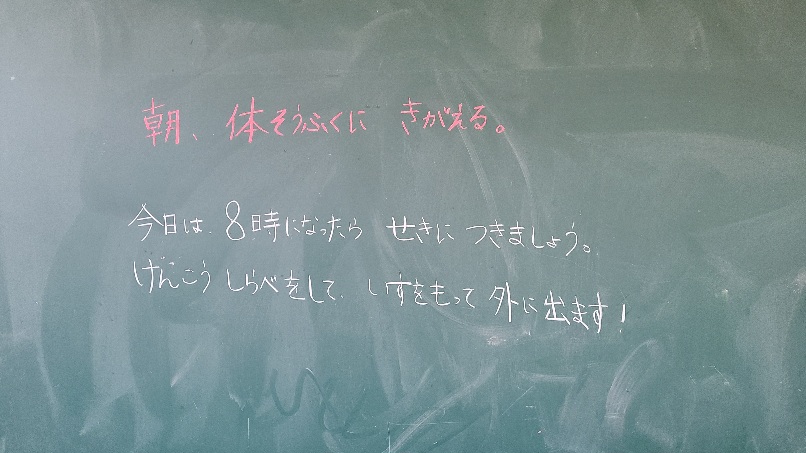 朝、体そうふくに きがえる。
今日は、8時になったら せきに つきましょう。
けんこう しらべをして、いすをもって 外に出ます!